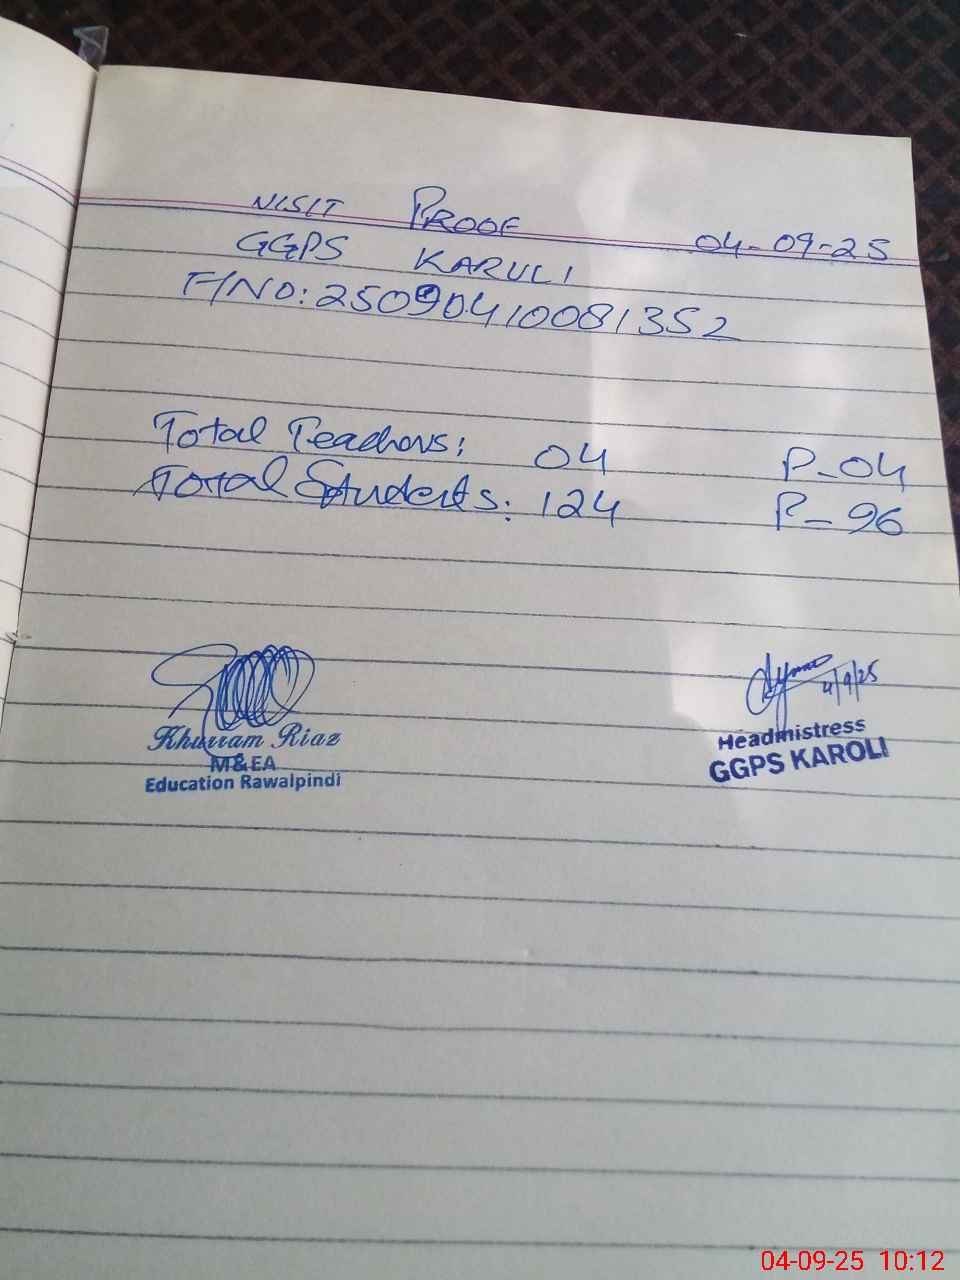 VISIT PROOF 04-09-25
GGPS KARULI
F/NO: 25090410081352
Total Teachers: 04 P-04
Total Students: 124 P-96
4/9/25
Khurram Riaz
M&EA
Education Rawalpindi
Headmistress
GGPS KAROLI
04-09-25 10:12